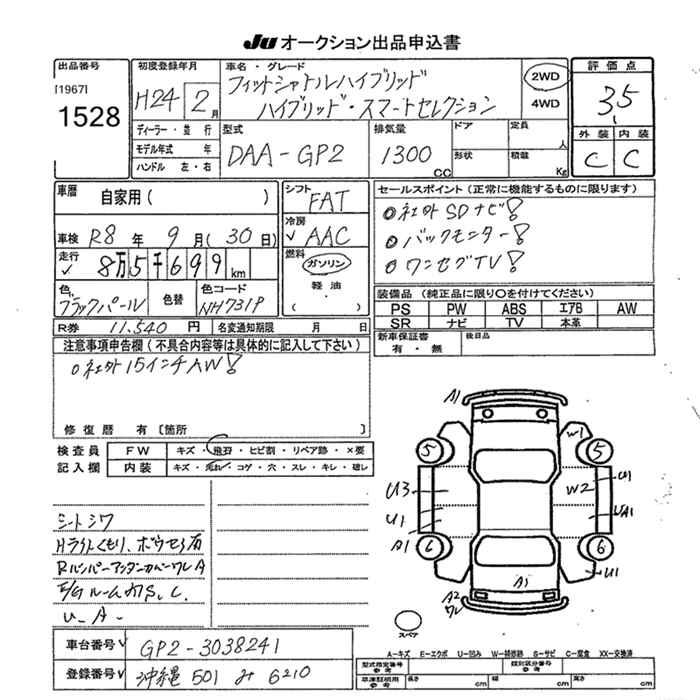 JU オークション出品申込書
出品番号
[1967]
1528
初度登録年月
H24 2月
車名・グレード
フィットシャトルハイブリッド
ハイブリッド・スマートセレクション
2WD
4WD
評価点
3.5
外装 内装
C C
ディーラー・並行
モデル年式 年
ハンドル 左・右
型式
DAA-GP2
排気量
1300 CC
ドア
形状
定員 人
積載 Kg
車歴 自家用( )
車検 R8年 9月(30日)
走行 8万5千699km
色 ブラックパール 色替 色コード NH731P
シフト FAT
冷房 AAC
燃料 ガソリン
軽油
( )
セールスポイント(正常に機能するものに限ります)
○社外SDナビ!
○バックモニター!
○ワンセグTV!
装備品(純正品に限り○を付けてください)
PS PW ABS エアB AW
SR ナビ TV 本革
新車保証書 有・無 後日品
R券 11,540円 名変通知期限 月 日
注意事項申告欄(不具合内容等は具体的に記入して下さい)
○社外15インチAW!
修復歴 有〔箇所 〕
検査員 FW キズ・飛石・ヒビ割・リペア跡・×要
記入欄 内装 キズ・汚れ・コゲ・穴・スレ・キレ・破レ
シートシワ
Hライトくもり、ボウセン有
RバンパーアンダーカバーワレA
E/Gルーム内S、C、
U-A-
A1
5 5
W1
U3 W2 U1
U1 UA1
A1
6 6
A1 U1
A2
ワレ
スペア
車台番号 GP2-3038241
登録番号 沖縄 501 み 6210
A-キズ E-エクボ U-凹み W-補修跡 S-サビ C-腐食 XX-交換済
型式指定番号 参考 類別区分番号 参考
車庫証明用 参考 長さ cm 幅 cm 高さ cm